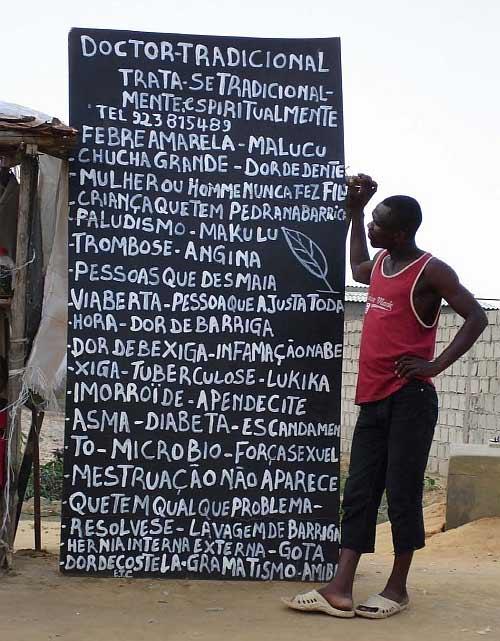 DOCTOR-TRADICIONAL
TRATA-SE TRADICIONAL-
MENTE.eSPIRITUALMENTE
TEL 923815489
FEBRE AMARELA - MALUCU
CHUCHA GRANDE - DOR DE DENTE
-MULHER OU HOMEM NUNCA FEZ FILI
CRIANÇA QUE TEM PEDRA NA BARRIG
PALUDISMO - MAKULU
TROMBOSE - ANGINA
-PESSOAS QUE DESMAIA
VIABERTA - PESSOA QUE AJUSTA TODA
HORA - DOR DE BARRIGA
DOR DE BEXIGA - INFAMAÇÃO NA BE
XIGA - TUBERCULOSE - LUKIKA
IMORROÏDE - APENDECITE
ASMA - DIABETA - ESCANDAMEN
TO - MICROBIO - FORÇA SEXUEL
MESTRUAÇÃO NÃO APARECE
QUE TEM QUALQUE PROBLEMA -
RESOLVESE - LAVAGEM DE BARRIGA
HERNIA INTERNA EXTERNA - GOTA
DOR DE COSTELA - GRAMATISMO - AMIBI
ETC